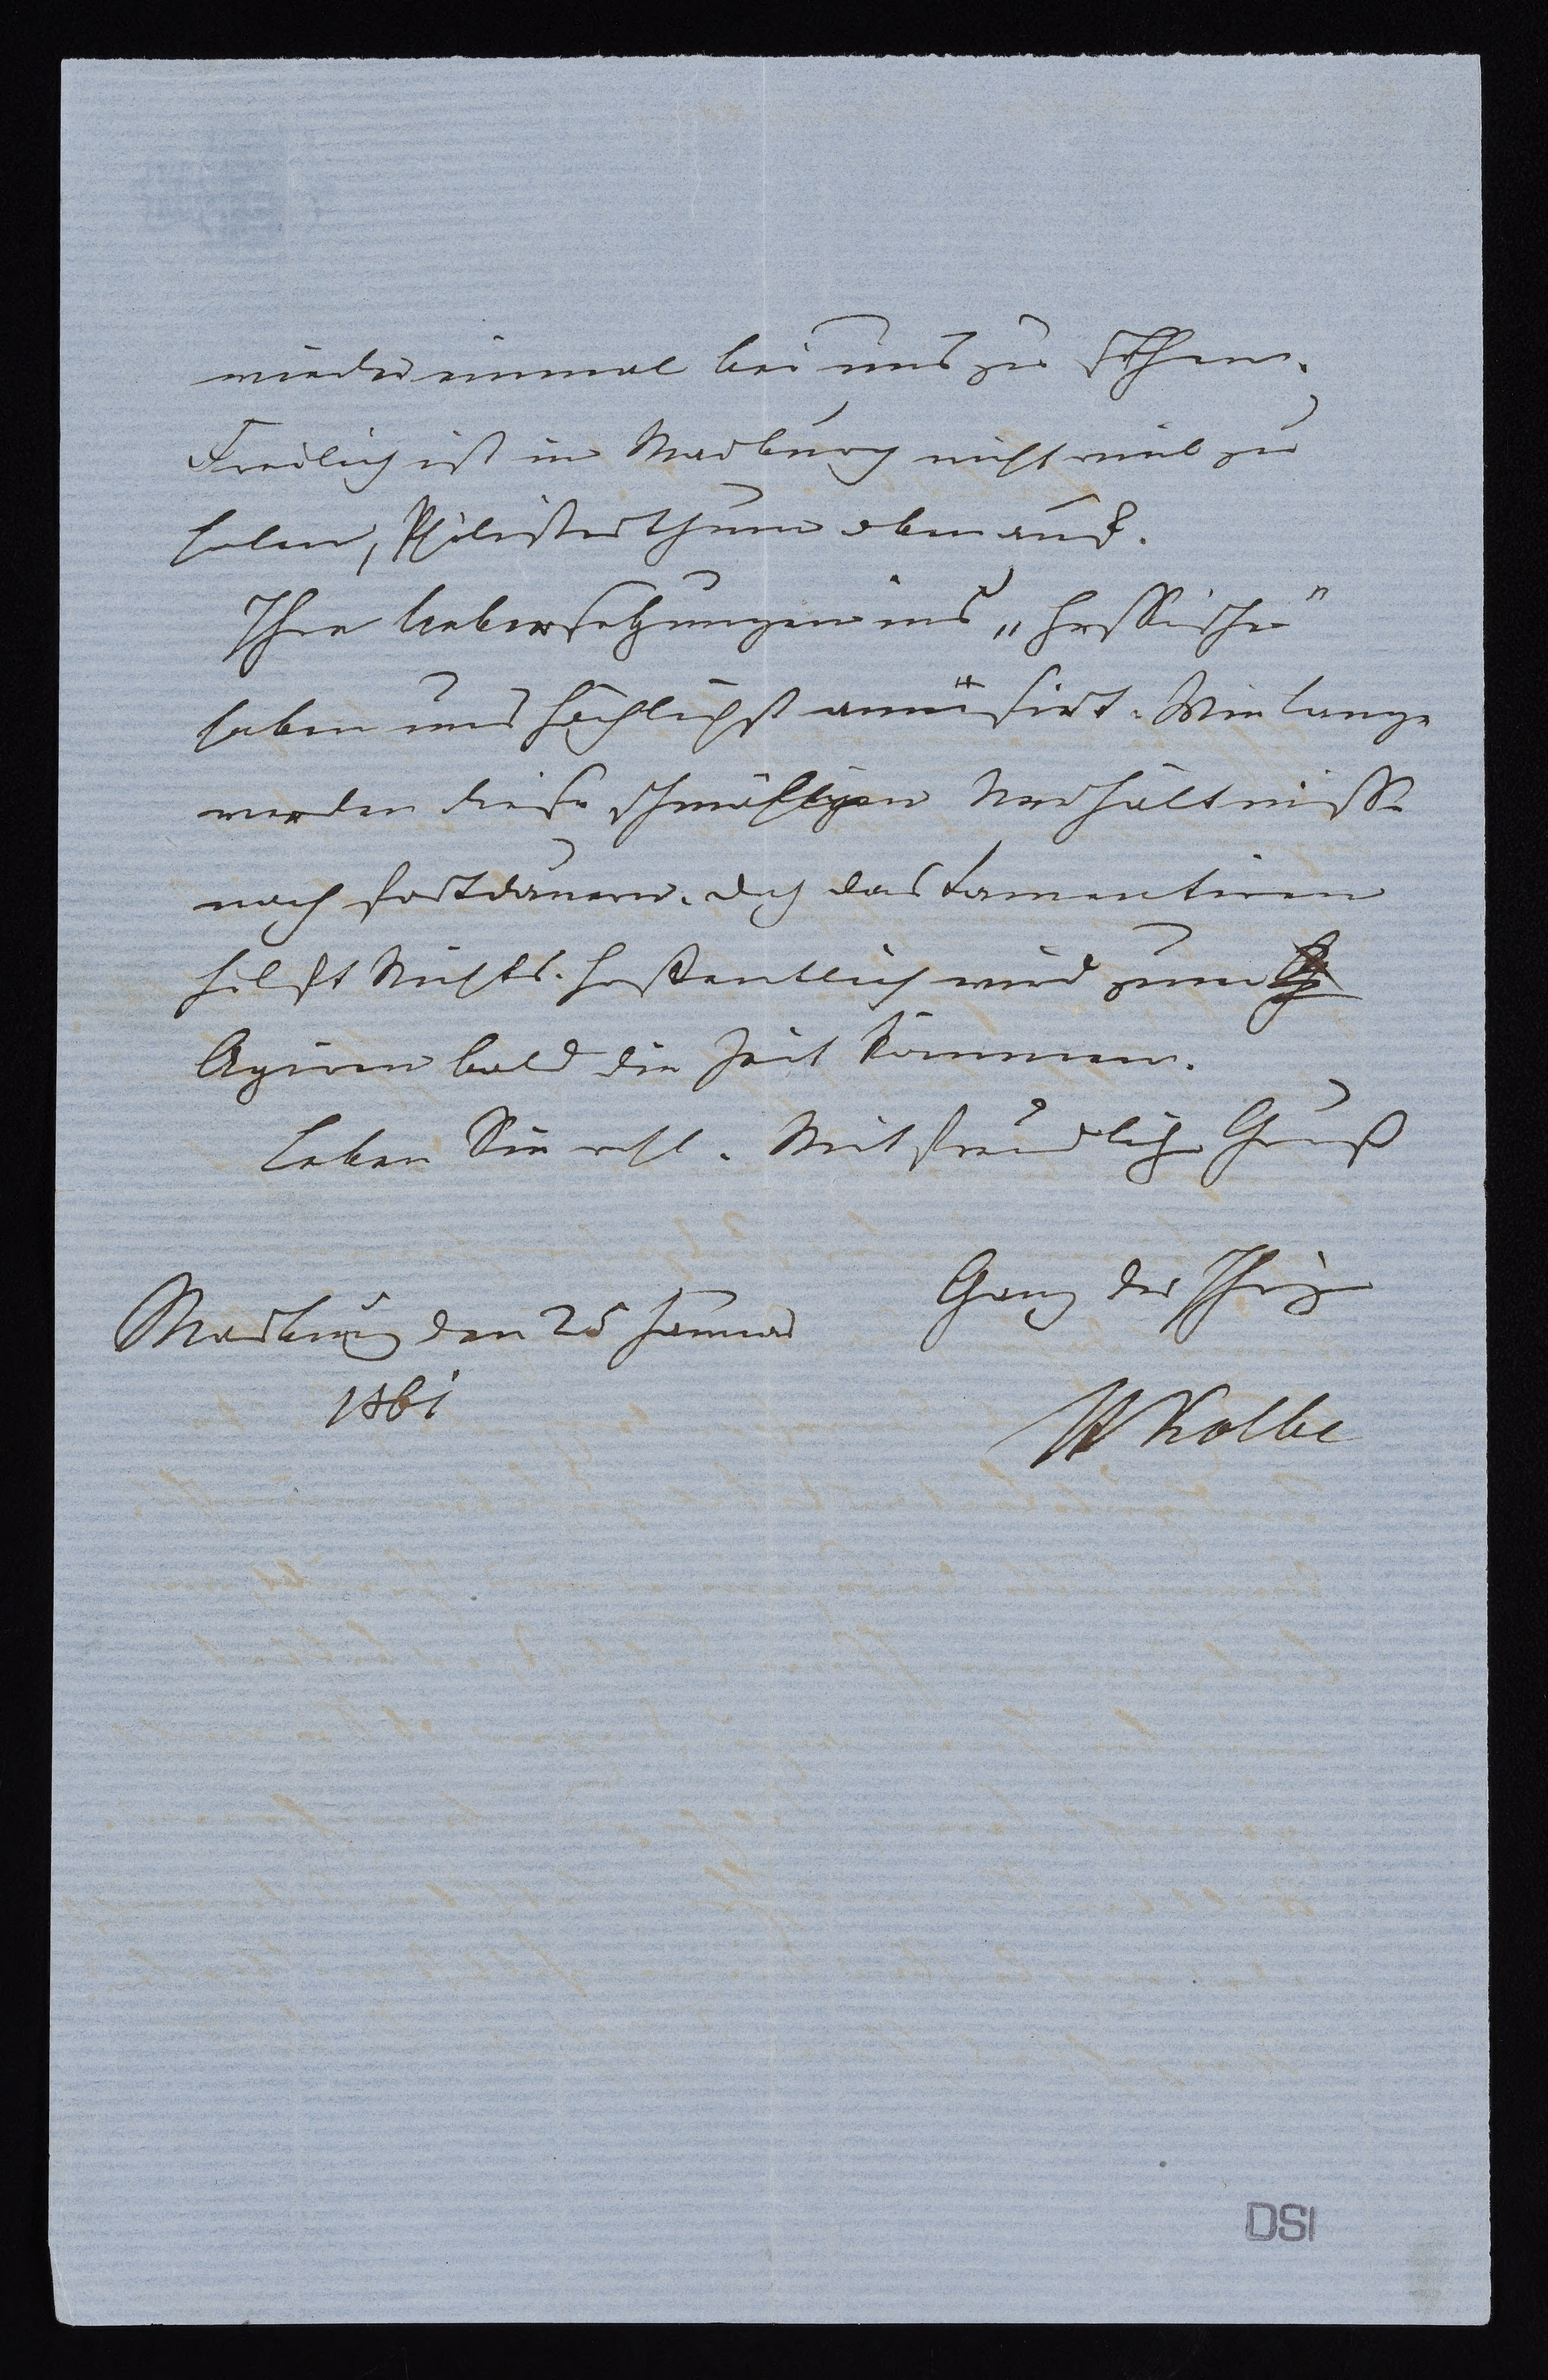 wieder einmal bei uns zu sehen.
Freilich ist in Marburg nicht viel zu
holen, Philisterthum obenauf.
Ihre Uebersetzungen ins „Hessische"
haben uns höchlichst amüsirt. Wie lange
werden diese schmähligen Verhältnisse
noch fortdauern. Doch das Lamentiren
hilft Nichts. Hoffentlich wird zum
Agiren bald die Zeit kommen.
Leben Sie wohl. Mit freundlich Gruß
Ganz der Ihrige
Marburg den 25 Januar
1861
H Kolbe
DSI